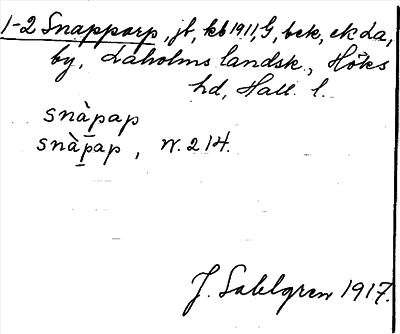 1-2 Snapparp, jb, kb 1911, G, bek, ekda,
by, Laholms landsk., Höks
hd, Hall. l.
snàpap
snàpap, n. 214.
J. Sahlgren 1917.